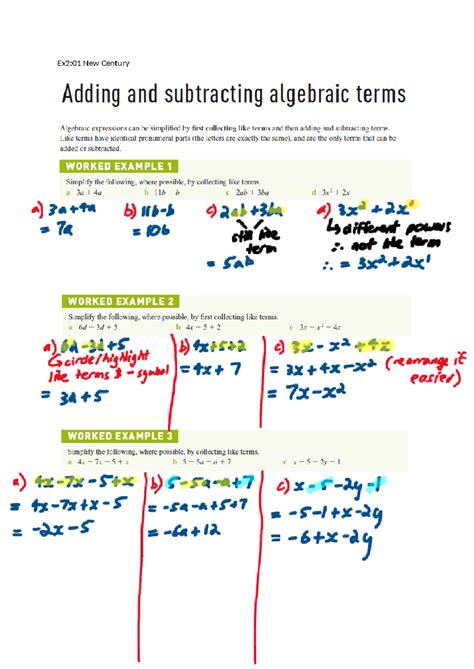 Ex2:01 New Century
Adding and subtracting algebraic terms
Algebraic expressions can be simplified by first collecting like terms and then adding and subtracting terms.
Like terms have identical pronumeral parts (the letters are exactly the same), and are the only terms that can be
added or subtracted.
WORKED EXAMPLE 1
Simplify the following, where possible, by collecting like terms.
a 3a + 4a b 11b − b c 2ab + 3ba d 3x² + 2x
a) 3a+4a b) 11b-b c) 2ab+3ba d) 3x² + 2x¹
= 7a = 10b still like term ↳ different powers
∴ not like term
= 5ab ∴ = 3x² + 2x¹
WORKED EXAMPLE 2
Simplify the following, where possible, by first collecting like terms.
a 6d − 3d + 5 b 4x + 5 + 2 c 3x − x² + 4x
a) 6d-3d+5 b) 4x+5+2 c) 3x - x² + 4x
↳ circle/highlight = 4x + 7 = 3x + 4x - x² (rearrange it
like terms & - symbol easier)
= 3d + 5 = 7x - x²
WORKED EXAMPLE 3
Simplify the following, where possible, by collecting like terms.
a 4x − 7x − 5 + x b 5 − 5a − a + 7 c x − 5 − 2y − 1
a) 4x-7x-5+x b) 5-5a-a+7 c) x-5-2y-1
= 4x-7x+x-5 = -5a-a+5+7 = -5-1+x-2y
= -2x-5 = -6a+12 = -6+x-2y